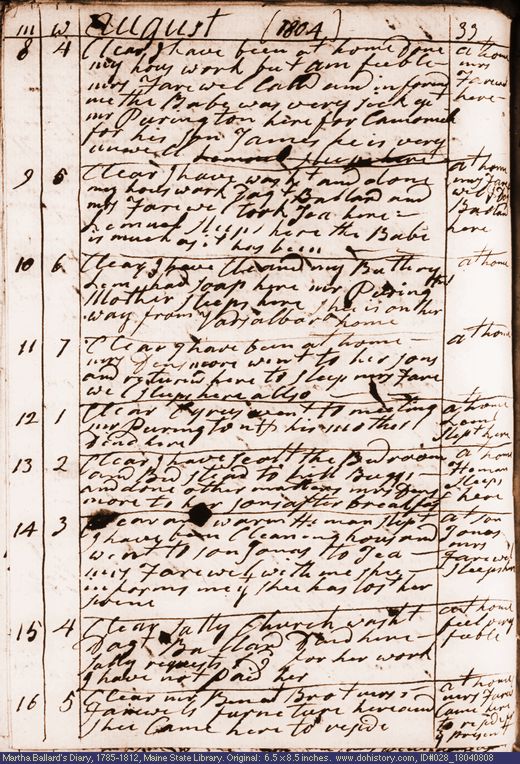 m w August (1804) 33
8 4 Clear I have been at home done at home
my hous work but am feeble mrs
mrs Farewel Calld and inform Farewel
me the Babe was very sick yt here
mr Purington here for Camomile
for his son James he is very
unwell
9 5 Clear I have washt and done at home
my hous work Daft Ballard and mrs Farewel
mrs Farewel took Tea here Ballard
Lemuel sleeps here the Babe here
is much as it has been
10 6 Clear I have Cleand my Buttery at home
hem had soap here mr Puringtns
Mother sleeps here she is on her
way from home
11 7 Clear I have been at home at home
mrs Densmore went to her sons
and returnd here to sleep mrs Fare
wel sleeps here also
12 1 Clear Cyrus went to meeting at home
mr Purington & his mother
Dind here slept here
13 2 Clear I have scalt the Bedroom at home
and Bed sted to kill Buggs Heman
and done other matters mrs Dens sleeps
more to her sons after breakfast here
14 3 Clear and warm Heman slept at son
I have been Cleaning hous and Jonas
went to son Jonas to Tea mrs
mrs Farewel with me shee Farewel
informs me yt shee has lost her sleeps here
swine
15 4 Clear Sally Church washt at home
Daft Ballard Dind here feel very
Sally requests for her work feeble
I have not paid her
16 5 Clear my Brot mrs at home
Farewels furneture here and mrs Farwel
shee Came here to reside Came here
to reside
Martha Ballard's Diary, 1785-1812, Maine State Library. Original: 6.5 x 8.5 inches. www.dohistory.com, ID#028_18040808